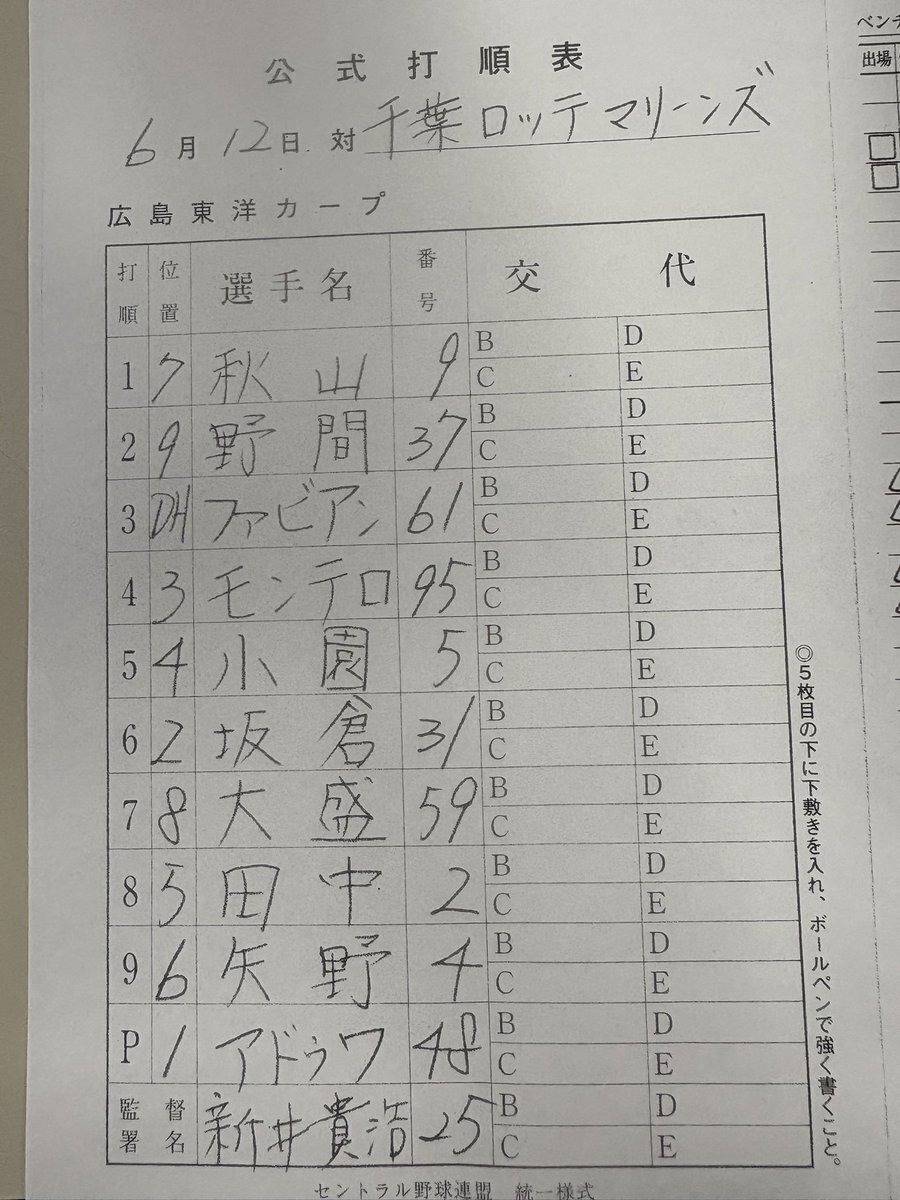 公式打順表
6月12日 対 千葉ロッテマリーンズ
広島東洋カープ
打順 位置 選手名 番号 交代
1 7 秋山 9 B D C E
2 9 野間 37 B D C E
3 DH ファビアン 61 B D C E
4 3 モンテロ 95 B D C E
5 4 小園 5 B D C E
6 2 坂倉 31 B D C E
7 8 大盛 59 B D C E
8 5 田中 2 B D C E
9 6 矢野 4 B D C E
P 1 アドゥワ 48 B D C E
監督署名 新井貴浩 25 B D C E
セントラル野球連盟 統一様式
◎5枚目の下に下敷きを入れ、ボールペンで強く書くこと。
ベンチ
出場